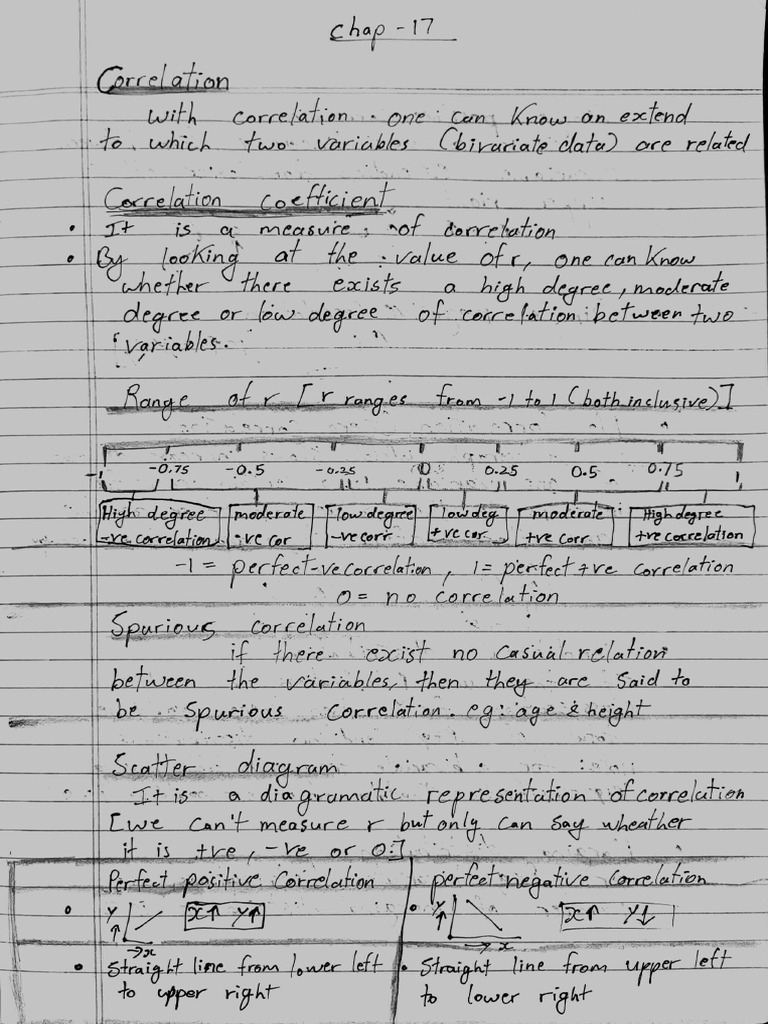 Chap - 17
Correlation
With correlation one can know an extend
to which two variables (bivariate data) are related
Correlation coefficient
• It is a measure of correlation
• By looking at the value of r, one can know
whether there exists a high degree, moderate
degree or low degree of correlation between two
variables.
Range of r [r ranges from -1 to 1 (both inclusive)]
-1 -0.75 -0.5 -0.25 0 0.25 0.5 0.75 1
High degree moderate low degree low deg moderate High degree
-ve correlation -ve cor -ve corr +ve cor. +ve corr. +ve correlation
-1 = perfect -ve correlation, 1 = perfect +ve correlation
0 = no correlation
Spurious correlation
if there exist no casual relation
between the variables, then they are said to
be spurious correlation. eg: age & height
Scatter diagram
It is a diagramatic representation of correlation
[we can't measure r but only can say wheather
it is +ve, -ve or 0.]
Perfect positive Correlation
• Y↑ →x x↑ Y↑
• Straight line from lower left
to upper right
perfect negative correlation
• Y↑ →x x↑ Y↓
• Straight line from upper left
to lower right